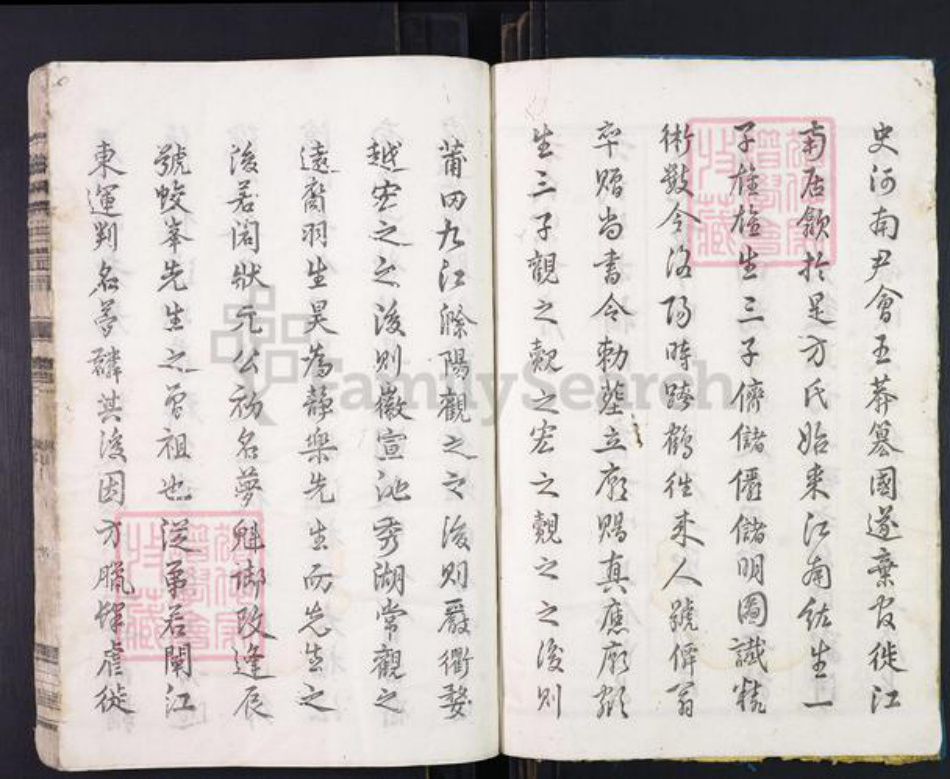 史河南尹會王莽簒國遂棄官徙江
南居歙於是方氏始来江南紘生一
子雄雄生三子儕儲儼儲明圖讖精
術數令洛陽時跨鶴往来人號僊翁
卒贈尚書令勅塟立廟賜真應廟額
生三子觀之覿之宏之觀之之後則
莆田九江滁陽觀之之後則嚴衢婺
越宏之之後則徽宣池秀湖常觀之
遠裔羽生昊為静樂先生而先生之
後若閤狀元公初名夢魁御改逢辰
號蛟峯先生之曾祖也從弟若閘江
東運判名夢麟其後因方臘肆虐徙
FamilySearch